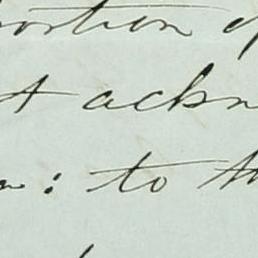 ortion o
t ackn
: to th